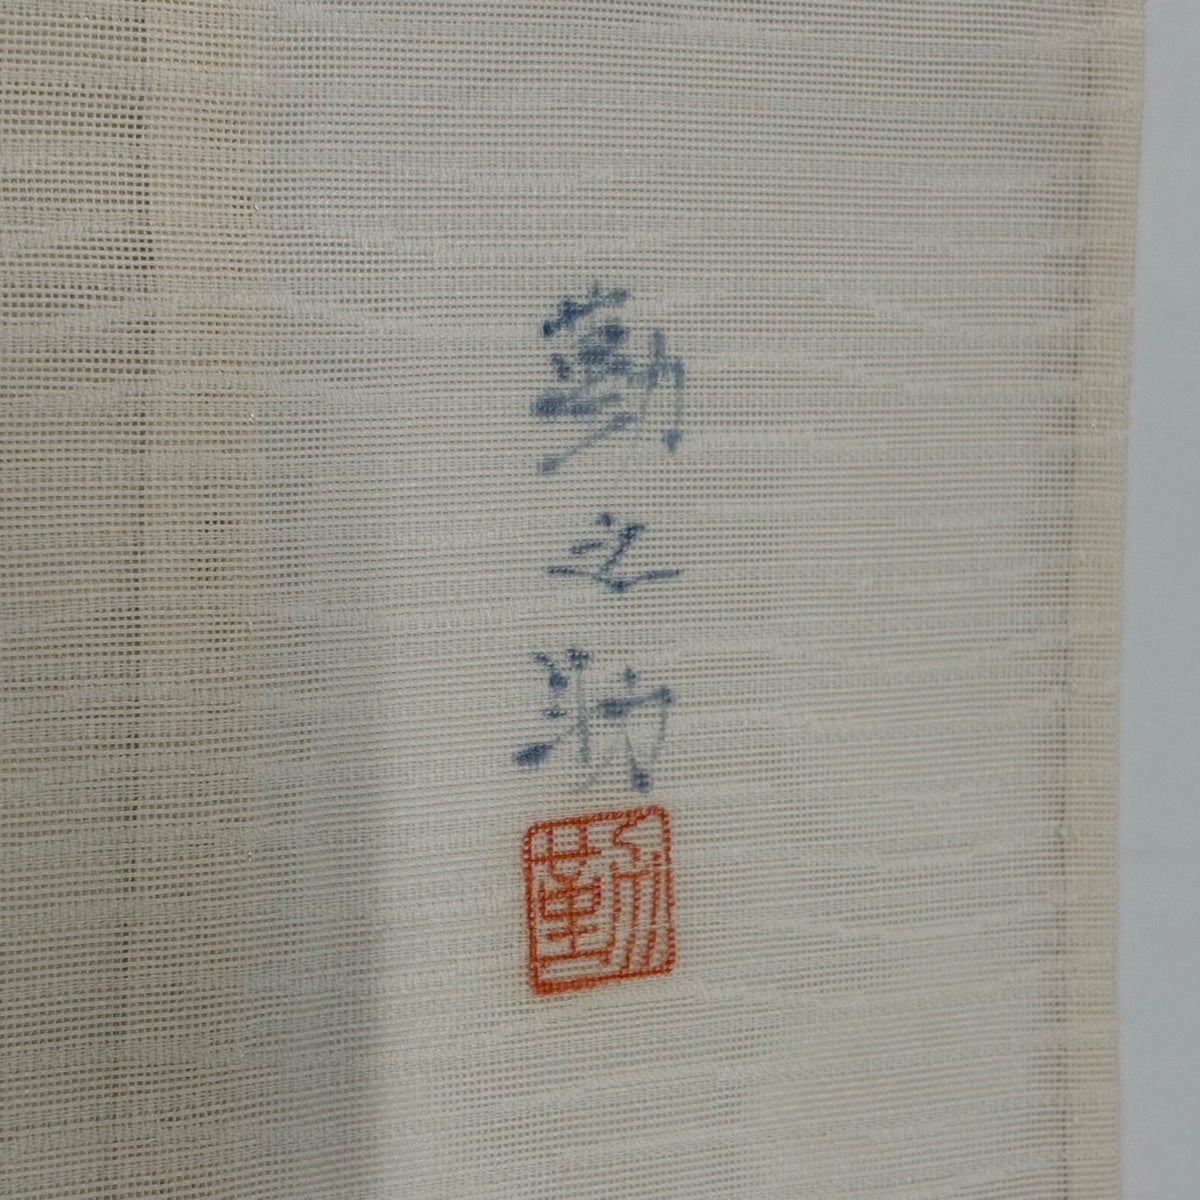 勤之助
勤